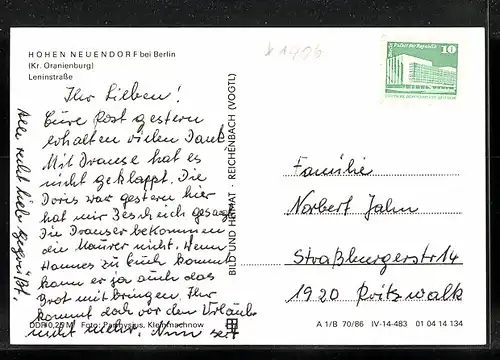 HOHEN NEUENDORF bei Berlin
(Kr. Oranienburg)
Leninstraße
Ihr Lieben!
Eure Post gestern
erhalten vielen Dank
Mit Drause hat es
nicht geklappt. Die
Doris war gestern hier
hat mir Besch eich gesagt
Die Drauser bekommen
die Maurer nicht. Wenn
Hannes zu Euch kommt
kann er ja auch das
Brot mit bringen. Ihr
kommt doch vor den Urlaub
nicht mehr. Nun seit
Alle recht lieb Gegrüßt.
DDR 0,20 M Foto: Kleinmachnow
BILD UND HEIMAT · REICHENBACH (VOGTL)
* 1406
Palast der Republik
10
DEUTSCHE DEMOKRATISCHE REPUBLIK
Familie
Norbert Jahn
Straßburgerstr 14
1920 Pritzwalk
A 1/B 70/86 IV-14-483 01 04 14 134